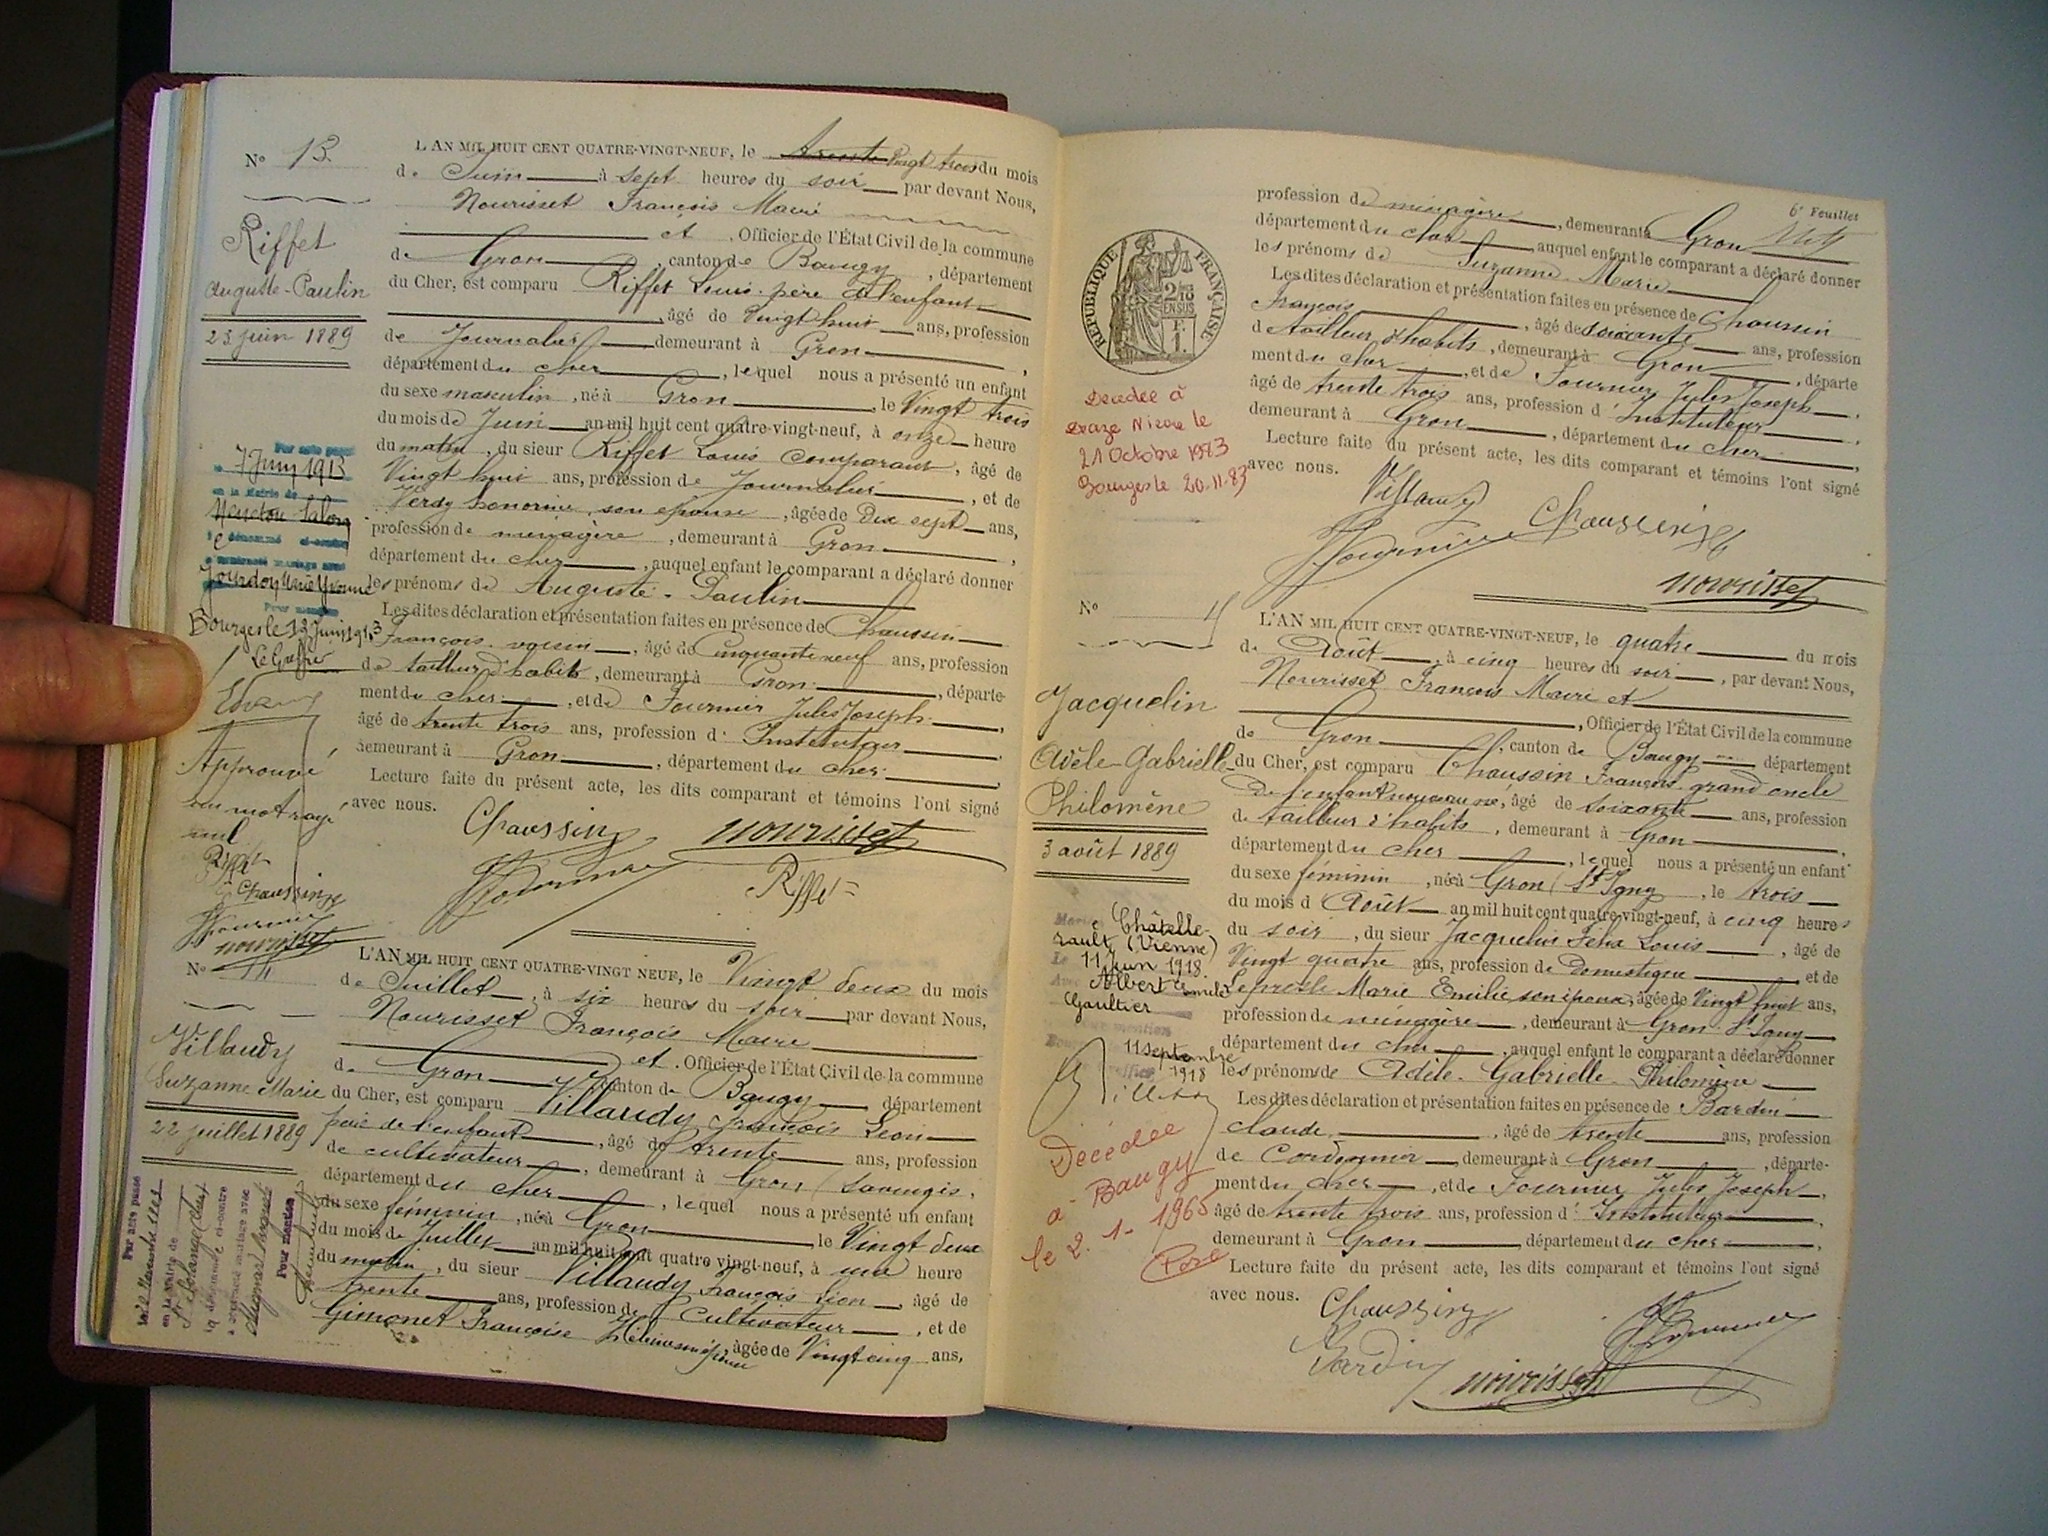 N° 13.
Riffet
Auguste-Paulin
23 juin 1889
7 Juin 1913
en la Mairie de
Menetou Salon
le dénommé ci-contre
a contracté mariage avec
Jourdoy Marie Yvonne
Pour mention
Bourges le 12 Juin 1913
Le Greffier
Approuvé
un mot rayé
nul
Riffet
Chaussin
Fournier
nourisset
L'AN MIL HUIT CENT QUATRE-VINGT-NEUF, le trente Vingt trois du mois
de Juin à sept heures du soir par devant Nous,
Nourisset François Maire
et , Officier de l'État Civil de la commune
de Gron , canton de Baugy , département
du Cher, est comparu Riffet Louis père de l'enfant
, âgé de Vingt huit ans, profession
de Journalier demeurant à Gron ,
département du cher , lequel nous a présenté un enfant
du sexe masculin , né à Gron , le Vingt trois
du mois de Juin an mil huit cent quatre-vingt-neuf, à onze heure
du matin , du sieur Riffet Louis comparant , âgé de
Vingt huit ans, profession de Journalier , et de
Verdy honorine son épouse , âgée de Dix sept ans,
profession de ménagère , demeurant à Gron ,
département du cher , auquel enfant le comparant a déclaré donner
les prénoms de Auguste-Paulin
Les dites déclaration et présentation faites en présence de Chaussin
François voisin , âgé de Cinquante neuf ans, profession
de tailleur d'habits , demeurant à Gron , départe-
ment du cher , et de Fournier Jules Joseph ,
âgé de trente trois ans, profession d' Instituteur
demeurant à Gron , département du cher ,
Lecture faite du présent acte, les dits comparant et témoins l'ont signé
avec nous.
Chaussin nourisset
Fournier Riffet
N° 14
Villaudy
Suzanne Marie
22 juillet 1889
Par acte passé
en la Mairie de
la dénommée ci-contre
a contracté mariage avec
Pour mention
L'AN MIL HUIT CENT QUATRE-VINGT NEUF, le Vingt deux du mois
de Juillet , à six heures du soir par devant Nous,
Nourisset François Maire
et . Officier de l'État Civil de la commune
de Gron canton de Baugy département
du Cher, est comparu Villaudy François Léon
père de l'enfant , âgé de trente ans, profession
de cultivateur , demeurant à Gron (Savougis,
département du cher , lequel nous a présenté un enfant
du sexe féminin , née à Gron , le Vingt deux
du mois de Juillet an mil huit cent quatre vingt-neuf, à une heure
du matin , du sieur Villaudy François Léon , âgé de
trente ans, profession de cultivateur , et de
Gimonet Françoise son épouse , âgée de Vingt cinq ans,
6e Feuillet
profession de ménagère , demeurant à Gron
département du cher auquel enfant le comparant a déclaré donner
les prénoms de Suzanne-Marie
Les dites déclaration et présentation faites en présence de Chaussin
François , âgé de soixante ans, profession
de tailleur d'habits , demeurant à Gron , départe
ment du cher , et de Fournier Jules Joseph ,
âgé de trente trois ans, profession d' Instituteur ,
demeurant à Gron , département du cher ,
Lecture faite du présent acte, les dits comparant et témoins l'ont signé
avec nous.
Villaudy Chaussin
Fournier
nourisset
RÉPUBLIQUE FRANÇAISE
2/10 EN SUS
F. 1.
Décédée à
le
21 Octobre 1983
Bourges le 20.11.83
N° 15
Jacquelin
Adèle-Gabrielle
Philomène
3 août 1889
Châtelle-
rault (Vienne)
Le 11 Juin 1918
Avec Albert Emile
Gaultier
11 septembre
1918
Décédée
à Baugy
le 2.1-1965
L'AN MIL HUIT CENT QUATRE-VINGT-NEUF, le quatre du mois
de Août , à cinq heures du soir , par devant Nous,
Nourisset François Maire et
, Officier de l'État Civil de la commune
de Gron , canton de Baugy département
du Cher, est comparu Chaussin François grand oncle
de l'enfant nouveau né, âgé de soixante ans, profession
de tailleur d'habits , demeurant à Gron ,
département du cher , lequel nous a présenté un enfant
du sexe féminin , née à Gron (St Igny , le trois
du mois d Août an mil huit cent quatre-vingt-neuf, à cinq heures
du soir , du sieur Jacquelin Félix Louis , âgé de
Vingt quatre ans, profession de Domestique et de
Marie Emilie son épouse, âgée de Vingt huit ans,
profession de ménagère , demeurant à Gron St Igny
département du cher , auquel enfant le comparant a déclaré donner
les prénoms de Adèle-Gabrielle-Philomène
Les dites déclaration et présentation faites en présence de Bardin
Claude , âgé de trente ans, profession
de Cordonnier , demeurant à Gron , départe-
ment du cher , et de Fournier Jules Joseph ,
âgé de trente trois ans, profession d' Instituteur ,
demeurant à Gron , département du cher ,
Lecture faite du présent acte, les dits comparant et témoins l'ont signé
avec nous.
Chaussin Fournier
Bardin nourisset